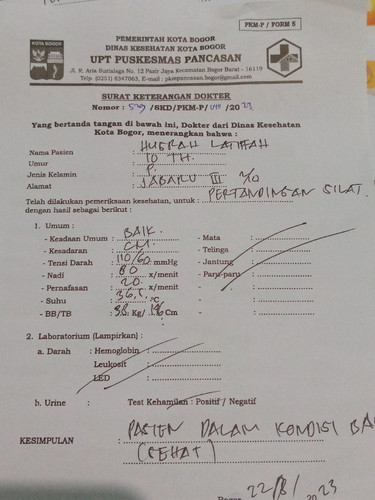 PKM-P / FORM 5
KOTA BOGOR
PEMERINTAH KOTA BOGOR
DINAS KESEHATAN KOTA BOGOR
UPT PUSKESMAS PANCASAN
Jl. R. Aria Surialaga No. 12 Pasir Jaya Kecamatan Bogor Barat - 16119
Telp. (0251) 8347063, E-mail : pkmpancasan.bogor@gmail.com
SURAT KETERANGAN DOKTER
Nomor : /SKD/PKM-P/ VIII /2023
Yang bertanda tangan di bawah ini, Dokter dari Dinas Kesehatan
Kota Bogor, menerangkan bahwa :
Nama Pasien : LATIFAH
Umur : 10 TH.
Jenis Kelamin : P.
Alamat : JABARU III
Telah dilakukan pemeriksaan kesehatan, untuk : PERTANDINGAN SILAT.
dengan hasil sebagai berikut :
1. Umum :
- Keadaan Umum : BAIK. - Mata :
- Kesadaran : CM - Telinga :
- Tensi Darah : 110/60 mmHg - Jantung :
- Nadi : 80 x/menit - Paru-paru :
- Pernafasan : 20 x/menit -
- Suhu : °C -
- BB/TB : Kg/ Cm -
2. Laboratorium (Lampirkan) :
a. Darah : Hemoglobin :
Leukosit :
LED :
b. Urine : Test Kehamilan : Positif / Negatif
KESIMPULAN : PASIEN DALAM KONDISI BA
(SEHAT)
Bogor 22/8/ 2023